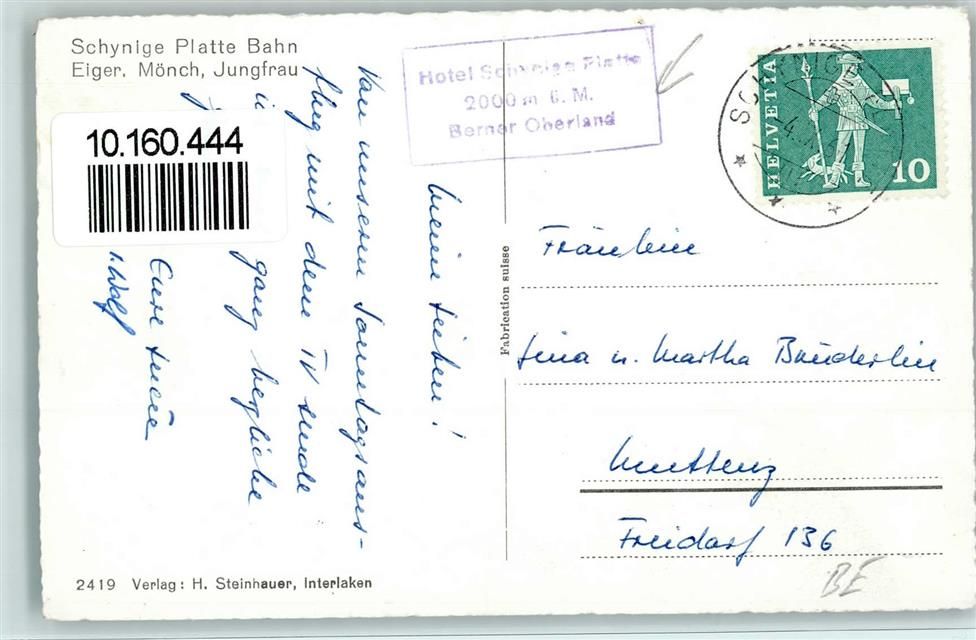 Schynige Platte Bahn
Eiger. Mönch, Jungfrau
10.160.444
Hotel Schynige Platte
2000 m ü. M.
Berner Oberland
SCHYNIGE
HELVETIA
10
Meine Lieben!
Von unserm Sonntagsaus-
flug mit dem TV sende
ganz herzliche
Eure
Fabrication suisse
Fräulein
Lina u. Martha Brüderlin
Muttenz
Freidorf 136
BE
2419 Verlag: H. Steinhauer, Interlaken